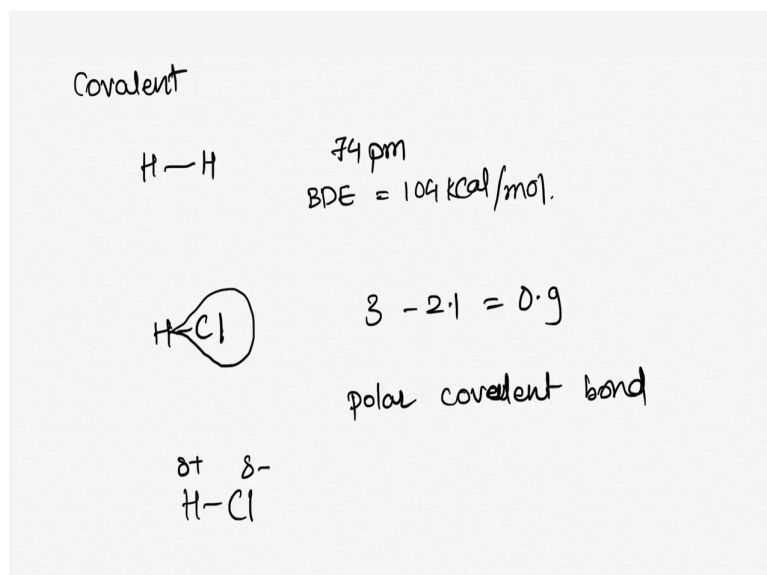 Covalent
H—H 74 pm
BDE = 104 kcal/mol.
H Cl 3 - 2.1 = 0.9
polar covalent bond
δ+ δ-
H-Cl